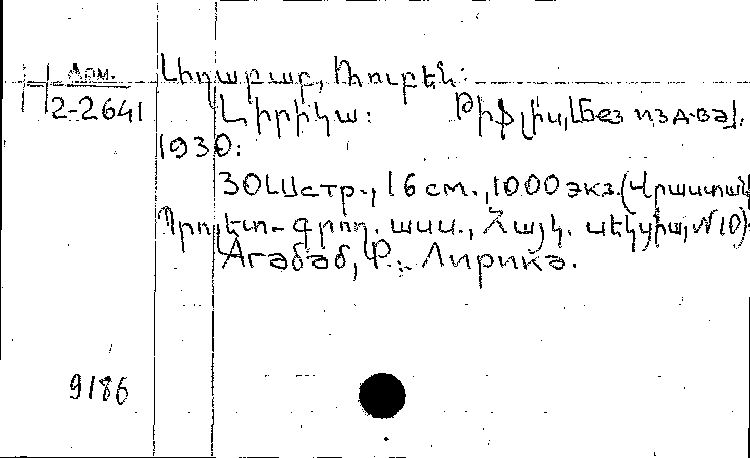 Арм.
2-2641
Աղաբաբ, Ռուբեն:
Լիրիկա: Թիֆլիս, [Без изд-ва],
1930:
30 стр., 16 см., 1000 экз. (Վրաստանի
Պրոլետ-գրող. ասս., Հայկ. սեկցիա, №10).
Агабаб, Р.: Лирика.
9186